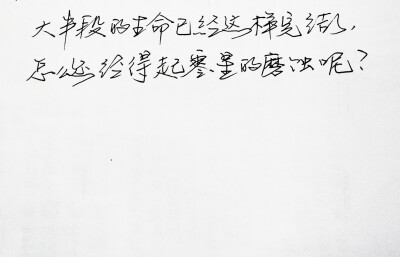 大半段的生命已经这样完结了,
怎么还经得起零星的磨蚀呢?